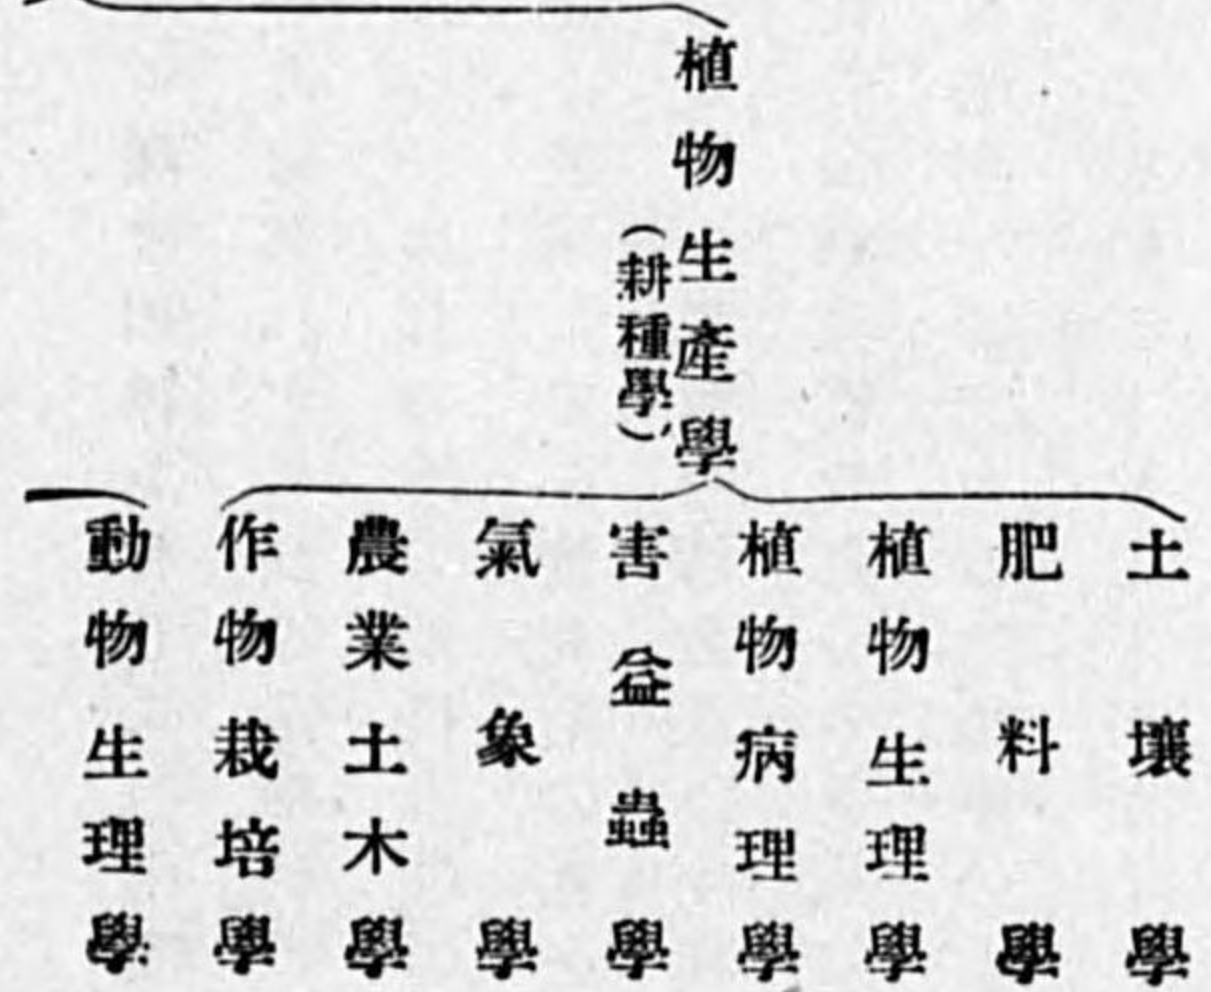 植物生產學
(耕種學)
土壤學
肥料學
植物生理學
植物病理學
害益蟲學
氣象學
農業土木學
作物栽培學
動物生理學